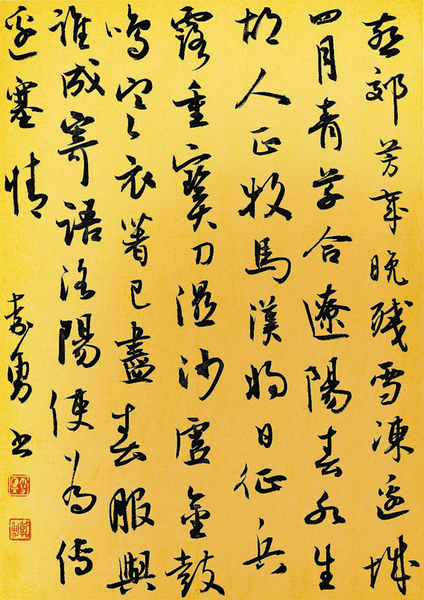 燕郊芳歲晚殘雪凍邊城
四月青草合遼陽春水生
胡人正牧馬漢將日征兵
露重寶刀濕沙虛金鼓
鳴寒衣著已盡春服與
誰成寄語洛陽使为傳
邊塞情 勇书